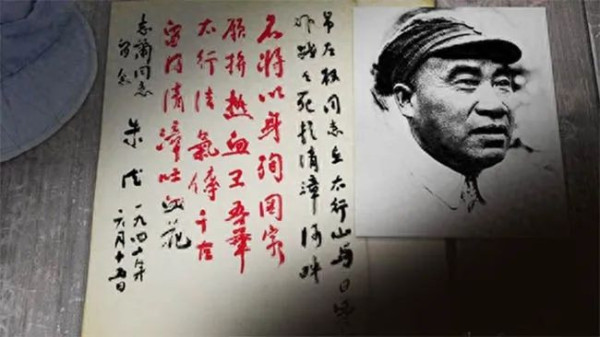 吊左权同志在太行山与日寇
作战々死於清漳河畔
名将以身殉国家
願拚熱血卫吾華
太行浩氣傳千古
留得清漳吐血花
志蘭同志
留念
朱德
一九四十年
六月十五日